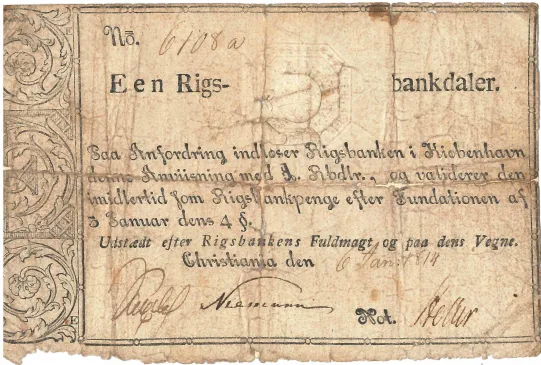 No. 6108a
Een Rigs- bankdaler.
Paa Anfordring indløser Rigsbanken i Kiøbenhavn
denne Anviisning med 1. Rbdlr., og validerer den
imidlertid som Rigsbankpenge efter Fundationen af
5 Januar dens 4 §.
Udstædt efter Rigsbankens Fuldmagt og paa dens Vegne.
Christiania den 6 Jan. 1814
Niemann
Not.
E